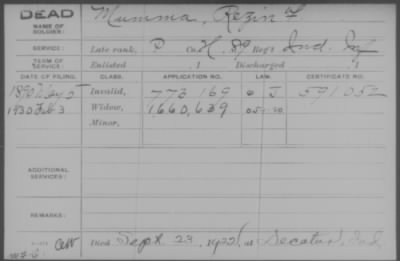 DEAD
NAME OF SOLDIER: Mumma, Rezin
SERVICE: Late rank, P Co. H, 89 Reg't Ind. Inf
TERM OF SERVICE: Enlisted , 1 Discharged , 1
DATE OF FILING. CLASS. APPLICATION NO. LAW. CERTIFICATE NO.
1890 Invalid, 773 169 J 591052
1930 Feb 3 Widow, 1660,639
Minor,
ADDITIONAL SERVICES:
REMARKS:
Died Sept. 23, 1922, at Decatur, Ind